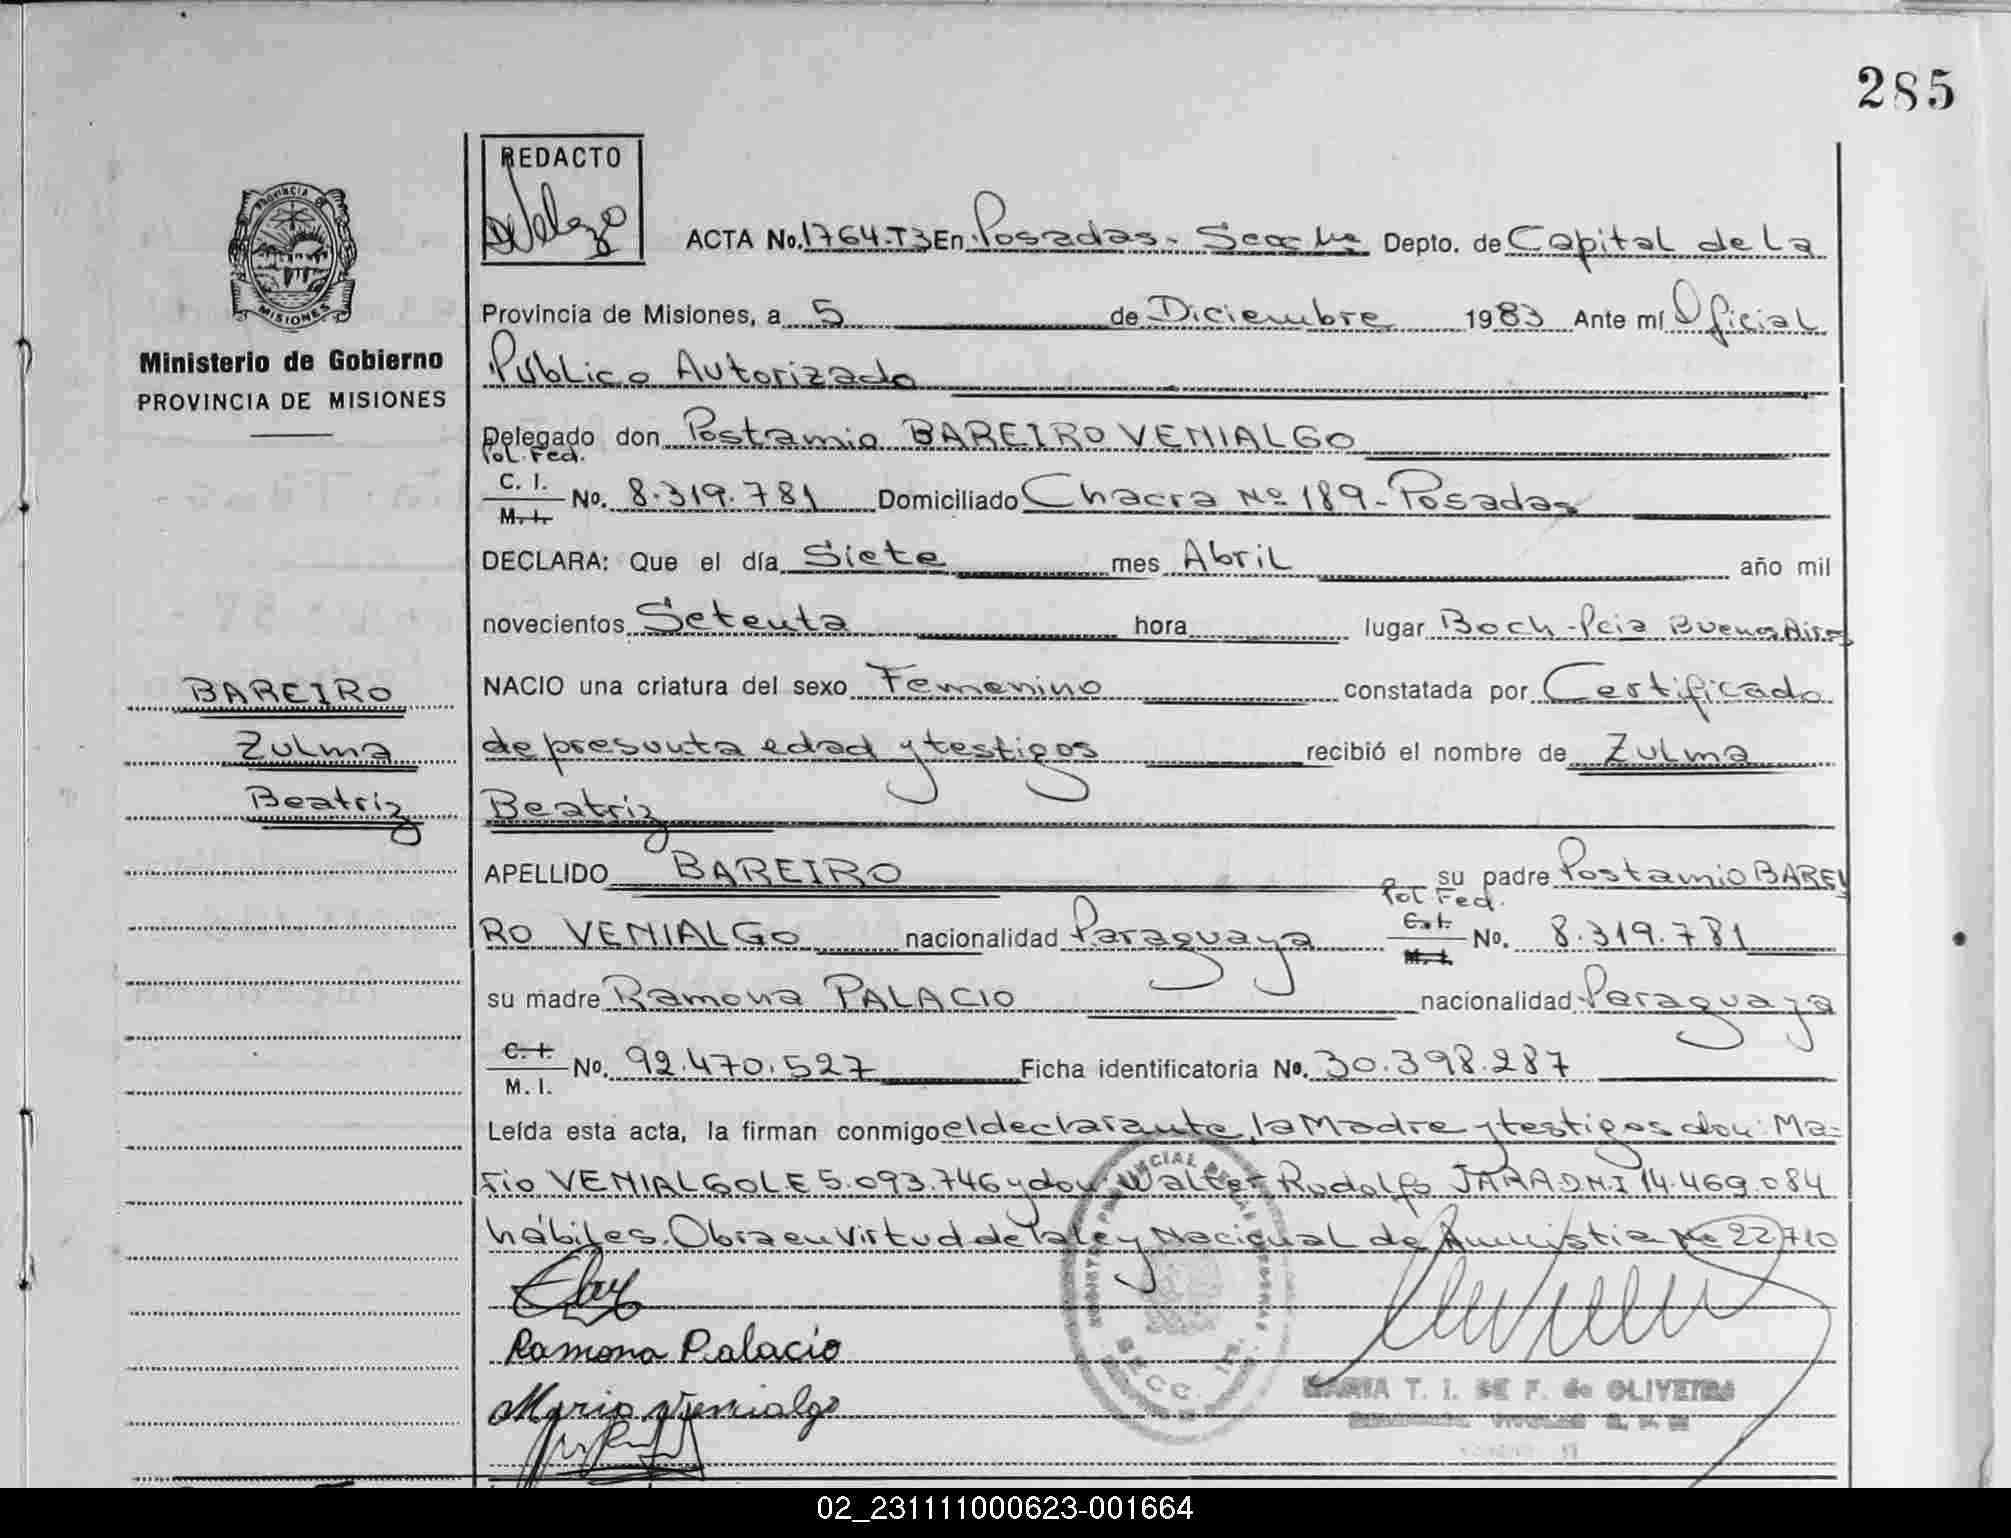 285
REDACTO
PROVINCIA DE
MISIONES
Ministerio de Gobierno
PROVINCIA DE MISIONES
ACTA No. 1764-T3 En Posadas - Depto. de Capital de La
Provincia de Misiones, a 5 de Diciembre 1983 Ante mí Oficial
Público Autorizado
Delegado don Postamio BAREIRO VENIALGO
Pol. Fed.
C. I. No. 8.319.781 Domiciliado Chacra Nº 189 - Posadas
M. I.
DECLARA: Que el día Siete mes Abril año mil
novecientos Setenta hora lugar Boch - Pcia Buenos Aires
NACIO una criatura del sexo Femenino constatada por Certificado
de presunta edad y testigos recibió el nombre de Zulma
Beatriz
BAREIRO
Zulma
Beatriz
APELLIDO BAREIRO su padre Postamio BAREI
Pol Fed.
RO VENIALGO nacionalidad Paraguaya C. I. No. 8.319.781
M. I.
su madre Ramona PALACIO nacionalidad Paraguaya
C. I. No. 92.470.527 Ficha identificatoria No. 30.398.287
M. I.
Leída esta acta, la firman conmigo el declarante, la Madre y testigos don: Ma-
rio VENIALGO LE 5.093.746 y don Walter Rodolfo JARA D.N.I 14.469.084
hábiles. Obra en virtud de la ley Nacional de Amnistia Nº 22710
Ramona Palacio
Mario Venialgo
SECC. 1ra.
MARIA T. I. DE F. de OLIVEIRA
02_231111000623-001664